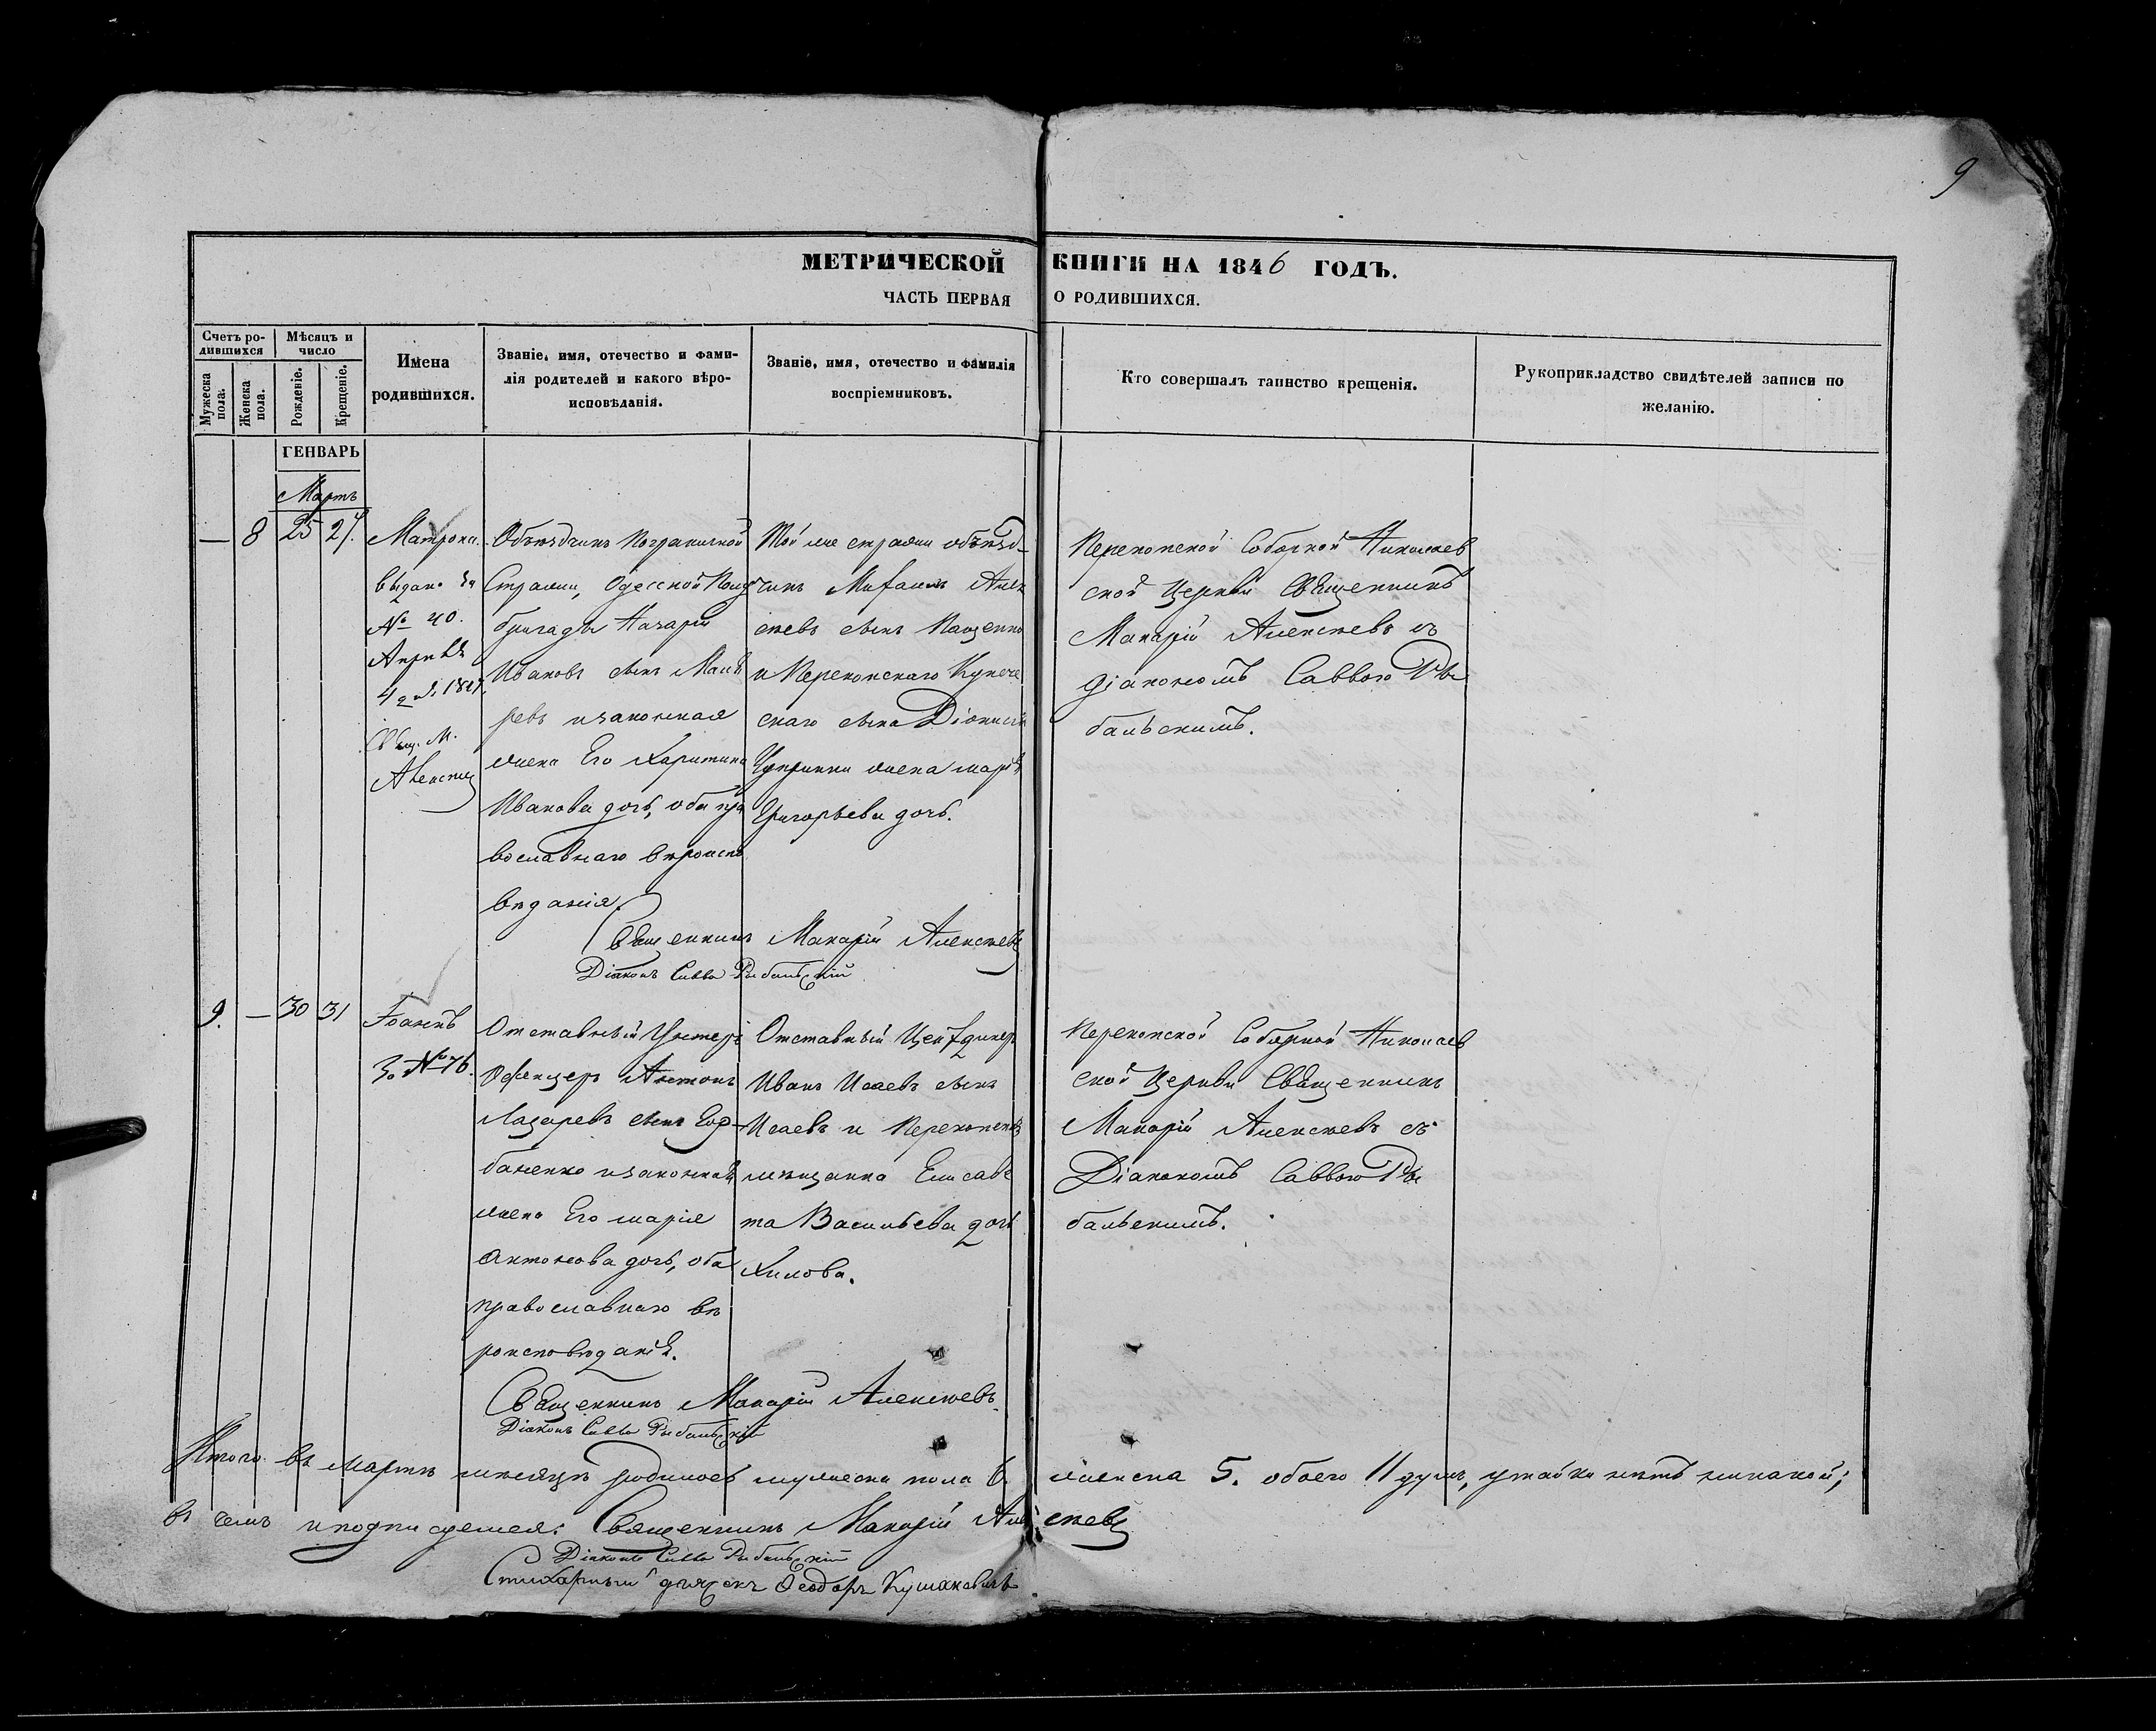 9
МЕТРИЧЕСКОЙ КНИГИ НА 1846 ГОДЪ.
ЧАСТЬ ПЕРВАЯ О РОДИВШИХСЯ.
Счетъ ро-
дившихся
Мужеска пола.
Женска пола.
Мѣсяцъ и
число
Рожденіе.
Крещеніе.
Имена
родившихся.
Званіе, имя, отечество и фами-
лія родителей и какого вѣро-
исповѣданія.
Званіе, имя, отечество и фамилія
воспріемниковъ.
Кто совершалъ таинство крещенія.
Рукоприкладство свидѣтелей записи по
желанію.
ГЕНВАРЬ
Мартъ
— 8 25 27.
Матрона.
выдано за
№ 40.
Апрѣля
4 го д. 1847.
Свящ. М.
Алексѣев
Объѣздчикъ Пограничной
Стражи, Одесской
бригады Назарій
Ивановъ сынъ
ревъ изаконная
жена Его Харитина
Иванова дочь, оба пра
вославнаго вѣроиспо
вѣданія.
Той же стражи объѣзд-
чикъ Михаилъ Алек
сѣевъ сынъ Пащенко
и Перекопскаго Купече
скаго сына Діонисія
Чуприны жена марія
Григорьева дочь.
Перекопской Соборной Николаев
ской Церкви Священникъ
Макарій Алексѣевъ съ
діакономъ Саввою Ры
бальскимъ.
Священникъ Макарій Алексѣевъ
Діаконъ Савва Рыбальскій
9. — 30 31
Іоаннъ
За № 76.
Отставный Унтеръ
Офицеръ Антонъ
Лазаревъ сынъ Гор-
баненко изаконная
жена Его марія
Антонова дочь, оба
православнаго вѣ
роисповѣданія.
Отставный
Иванъ Исаевъ сынъ
Исаевъ и Перекопская
мѣщанка Елисаве
та Васильева дочь
Хилова.
Перекопской Соборной Николаев
ской Церкви Священникъ
Макарій Алексѣевъ съ
Діакономъ Саввою Ры
бальскимъ.
Священникъ Макарій Алексѣевъ.
Діаконъ Савва Рыбальскій
Итого въ Мартѣ мѣсяцѣ родилось мужеска пола 6. женска 5. обоего 11 душъ, утайки нѣтъ никакой;
въ чемъ иподписуемся: Священникъ Макарій Алексѣевъ
Діаконъ Савва Рыбальскій
Стихарный дьячекъ Ѳеодоръ Кушаковичъ